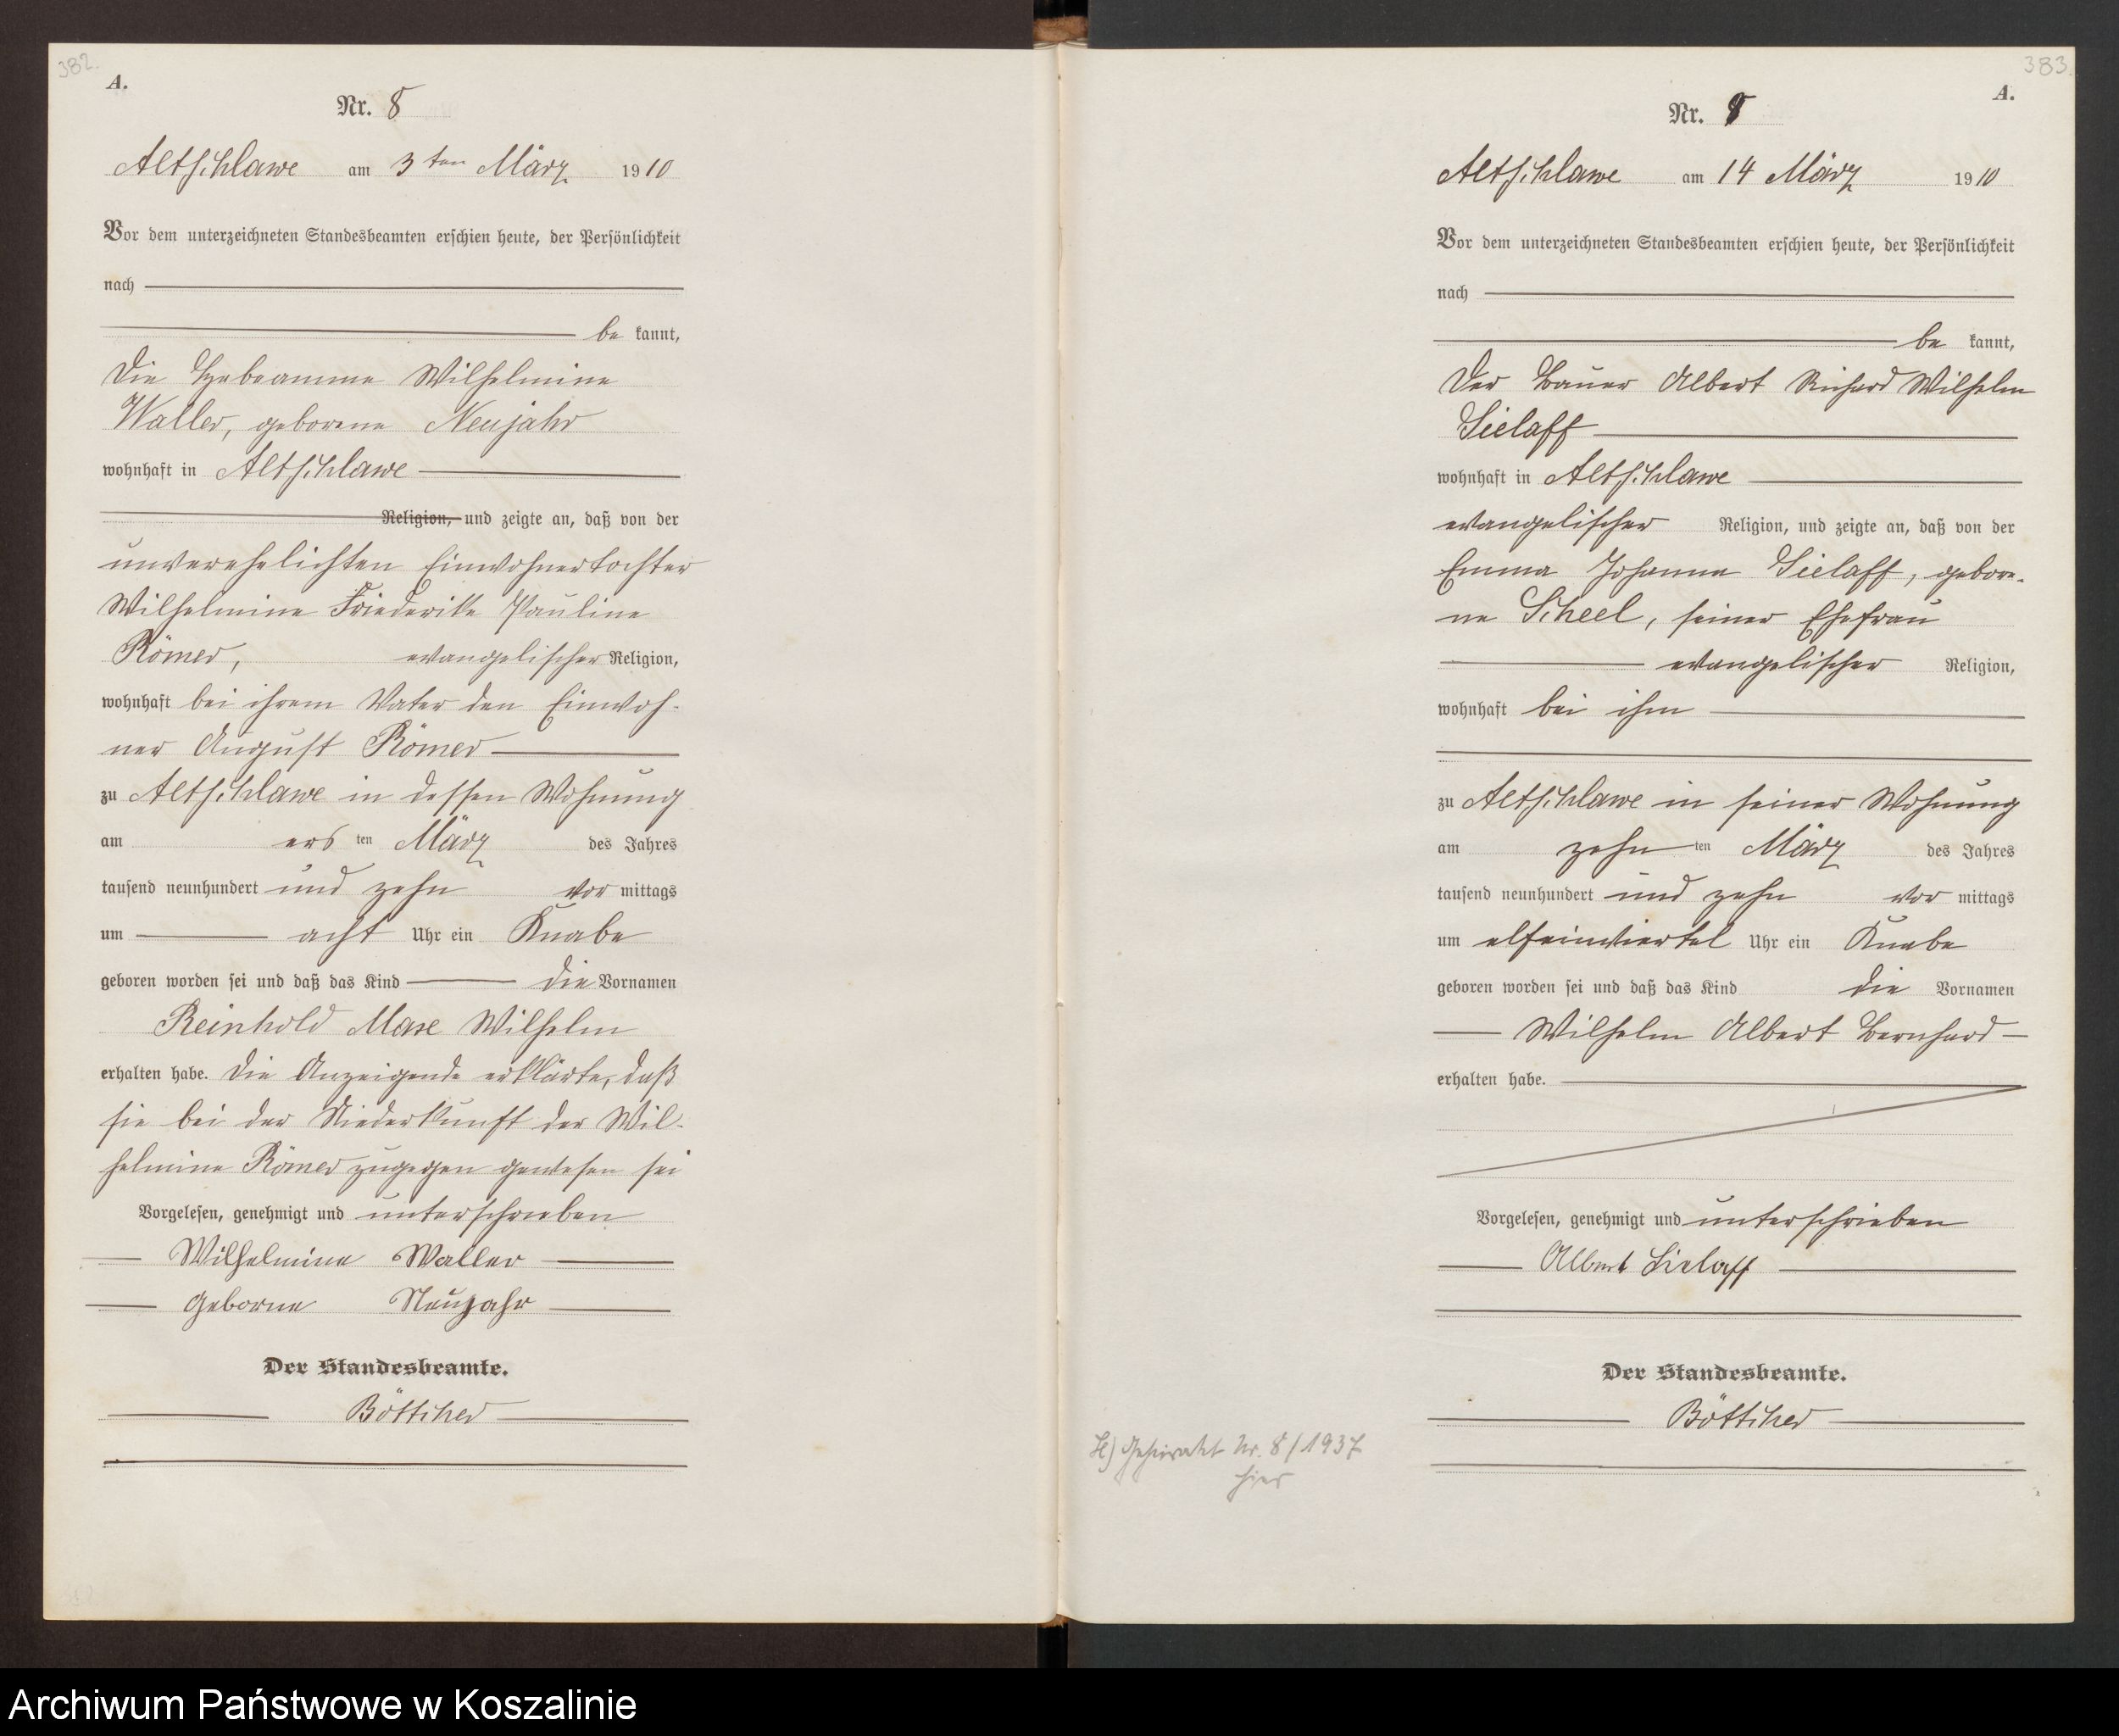 382.
A.
Nr. 8
Altschlawe am 3ten März 1910
Vor dem unterzeichneten Standesbeamten erschien heute, der Persönlichkeit
nach
be kannt,
die Hebeamme Wilhelmine
Waller, geborene Neujahr
wohnhaft in Altschlawe
Religion, und zeigte an, daß von der
unverehelichten Einwohnertochter
Wilhelmine Friederike Pauline
Römer, evangelischer Religion,
wohnhaft bei ihrem Vater den Einwoh-
ner August Römer
zu Altschlawe in dessen Wohnung
am ers ten März des Jahres
tausend neunhundert und zehn vor mittags
um acht Uhr ein Knabe
geboren worden sei und daß das Kind die Vornamen
Reinhold Maxe Wilhelm
erhalten habe. Die Anzeigende erklärte, daß
sie bei der Niederkunft der Wil-
helmine Römer zugegen gewesen sei
Vorgelesen, genehmigt und unterschrieben
Wilhelmine Waller
geborne Neujahr
Der Standesbeamte.
Böttcher
383.
A.
Nr.
Altschlawe am 14 März 1910
Vor dem unterzeichneten Standesbeamten erschien heute, der Persönlichkeit
nach
be kannt,
der Bauer Albert Richard Wilhelm
Sielaff
wohnhaft in Altschlawe
evangelischer Religion, und zeigte an, daß von der
Emma Johanna Sielaff, gebore-
ne Scheel, seiner Ehefrau
evangelischer Religion,
wohnhaft bei ihm
zu Altschlawe in seiner Wohnung
am zehn ten März des Jahres
tausend neunhundert und zehn vor mittags
um elfeinviertel Uhr ein Knabe
geboren worden sei und daß das Kind die Vornamen
Wilhelm Albert Bernhard
erhalten habe.
Vorgelesen, genehmigt und unterschrieben
Albert Sielaff
Der Standesbeamte.
Böttcher
Geheiratet Nr. 8/1937
hier
Archiwum Państwowe w Koszalinie